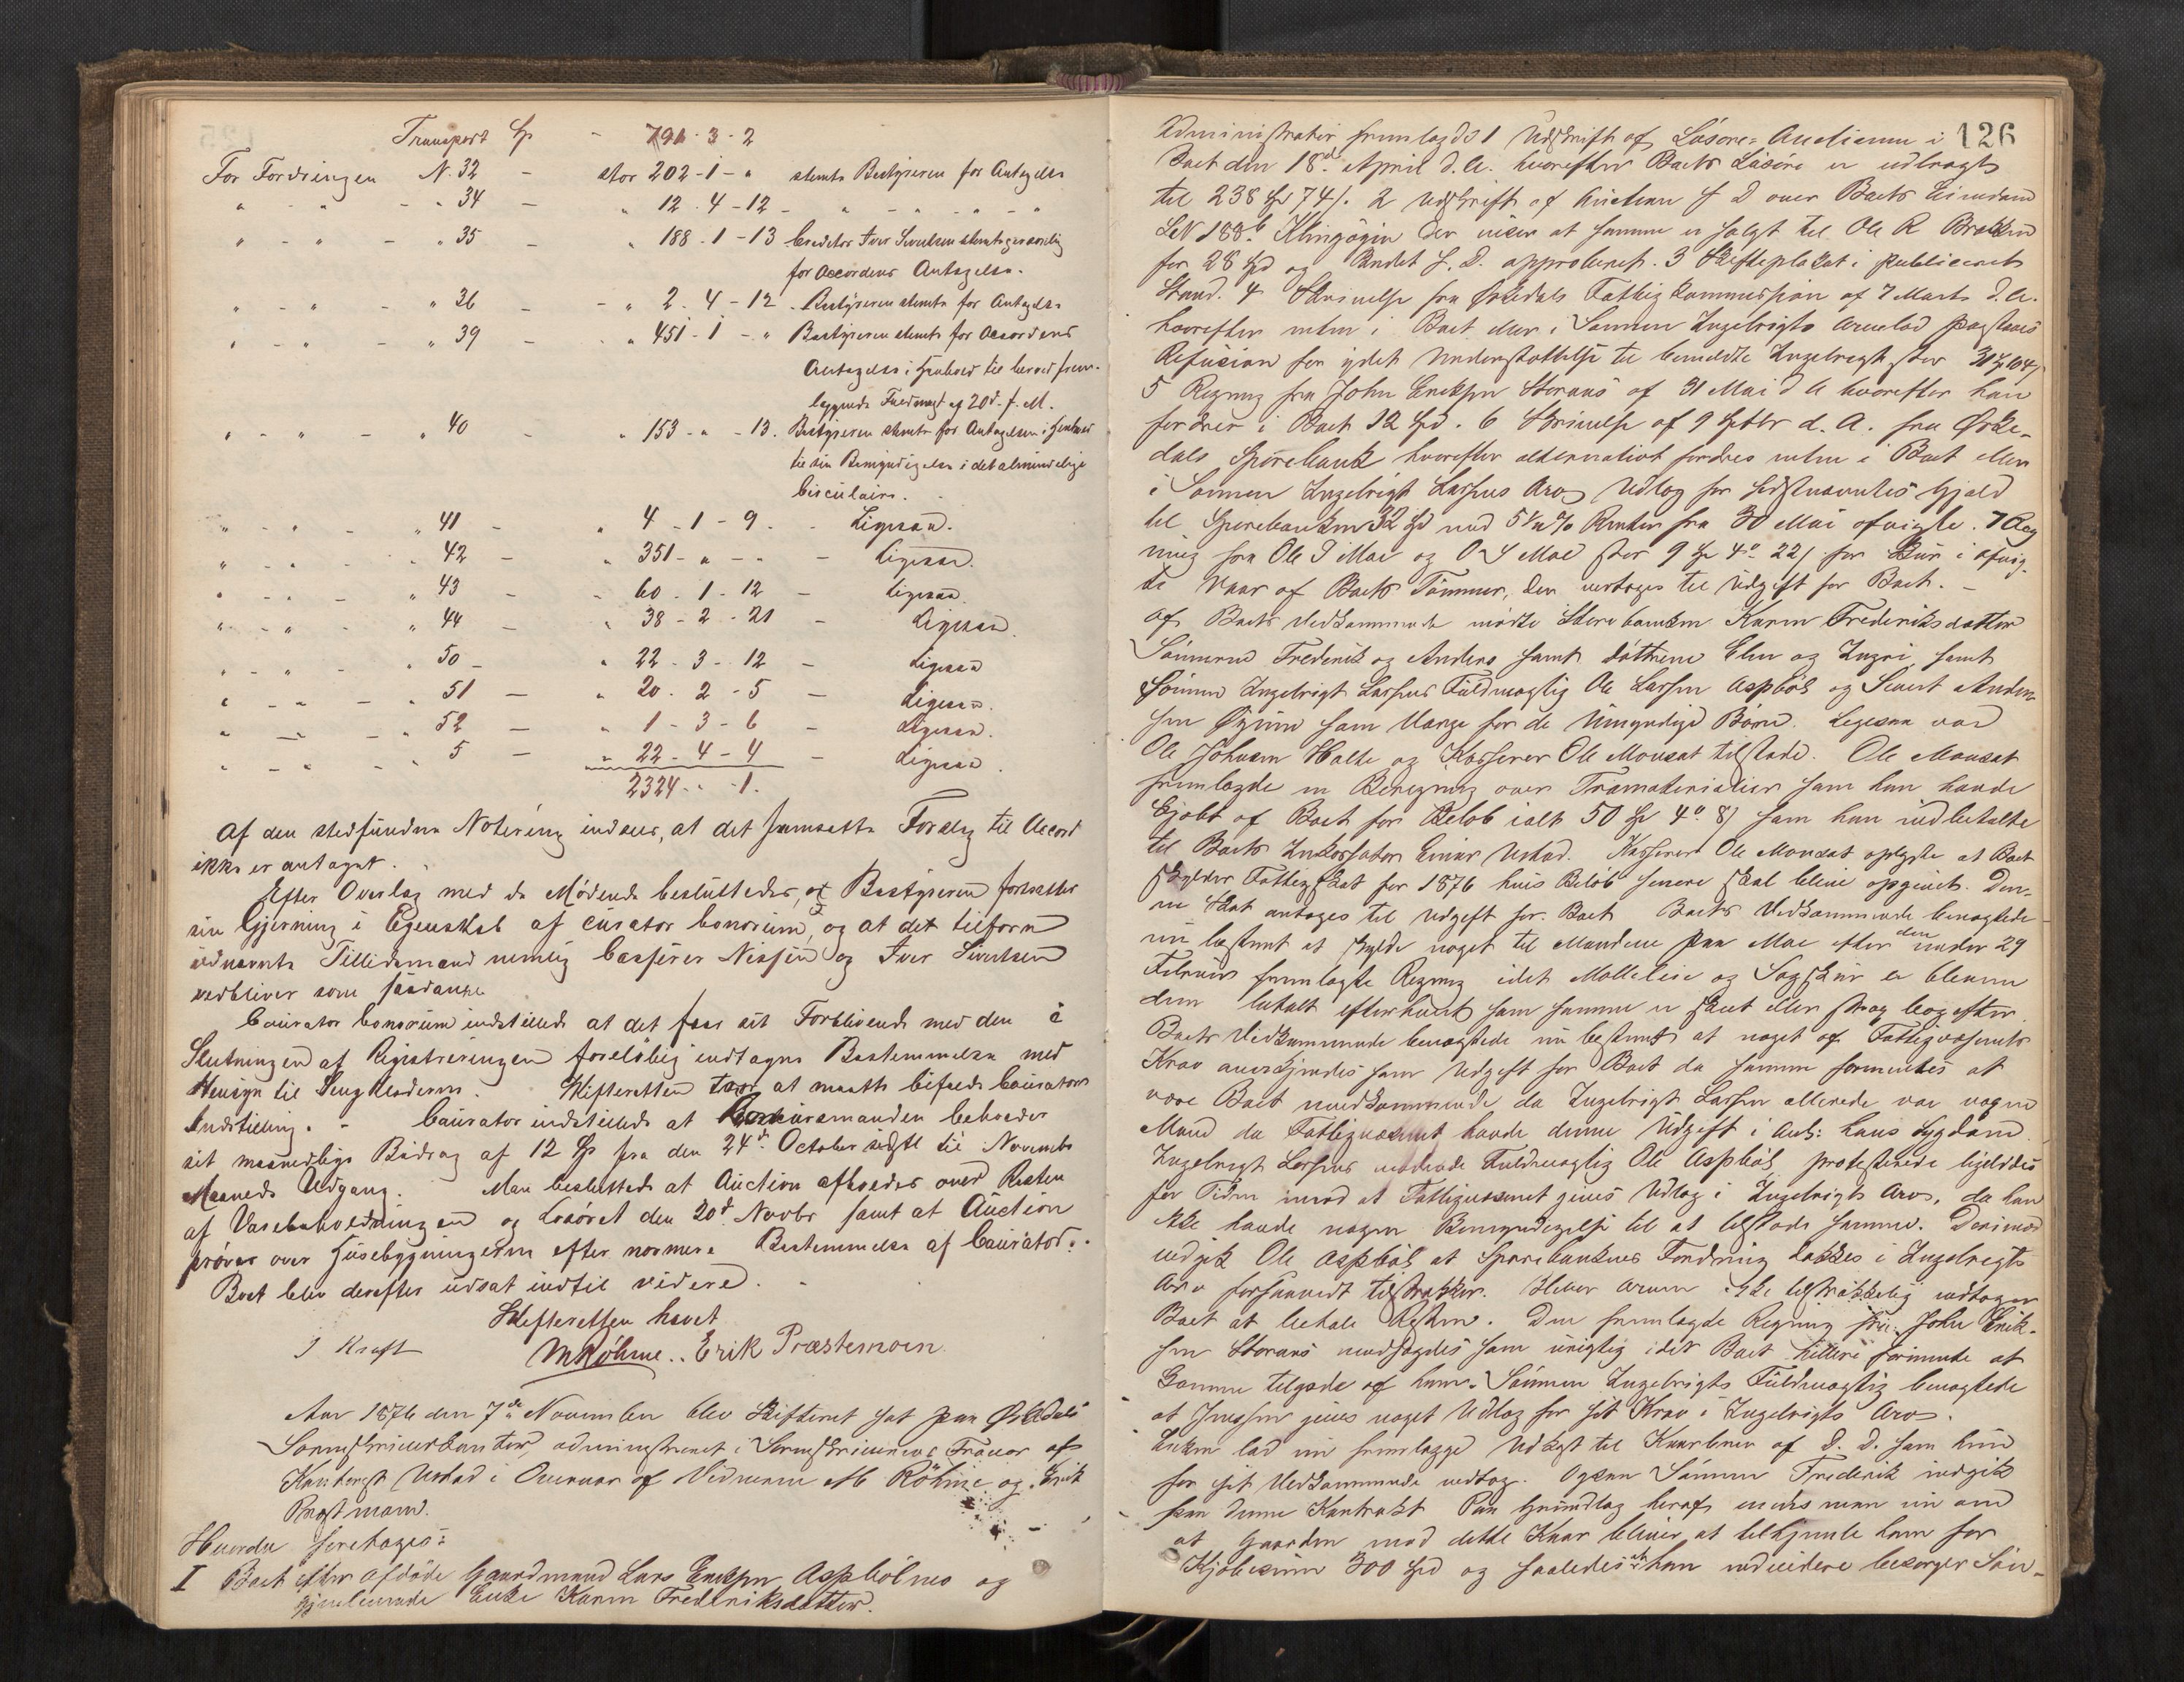 Transport Sp - 791-3-2
For Fordringen N. 32 - stor 202-1-" stemte Bestyreren for Antagelse
" - " - " 34 - " 12-4-12 - " - " - " - "
" - " - " 35 - " 188-1-13 Creditor Iver Sivertsen stemte personlig
for Accordens Antagelse.
" - " - " 36 - " 2-4-12 - Bestyreren stemte for Antagelse
" - " - " 39 - " 451-1-" Bestyreren stemte for Accordens
Antagelse i Henhold til herved frem-
lagende Fuldmagt af 20d. f. M.
" - " - " 40 - " 153-"-13. Bestyreren stemte for Antagelsen i Henhold
til sin Bemyndigelse i det almindelige
Circulaire.
" - " - " 41 - " 4-1-9 - Ligesaa.
" - " - " 42 - " 351-"-" - Ligesaa.
" - " - " 43 - " 60-1-12 - Ligesaa
" - " - " 44 - " 38-2-21 - Ligesaa.
" - " - " 50 - " 22-3-12 - Ligesaa
" - " - " 51 - " 20-2-5 - Ligesaa.
" - " - " 52 - " 1-3-6 - Ligesaa.
" - " - " 5 - " 22-4-4 - Ligesaa.
2324-"-1.
Af den stedfundne Notering indsees, at det fremsatte Forslag til Accord
ikke er antaget.
Efter Overlæg med de Mødende besluttedes, at Bestyreren fortsætter
sin Gjerning i Egenskab af curator bonorum, og at det tilforn
udnævnte Tillidsmænd nemlig Casserer Nissen og Iver Sivertsen
vedbliver som saadanne
Curator bonorum indstillede at det faar sit Forblivende med den i
Slutningen af Registreringen foreløbig indtagne Bestemmelse med
Hensyn til Sengklæderne. Skifteretten tog at maatte bifalde Curators
Indstilling. - Curator indstillede at Konkursmanden beholder
sit maanedlige Bidrag af 12 Sp fra den 24d. October sidstl til November
Maaneds Udgang. Man besluttede at Auction afholdes over Resten
af Varebeholdningen og Løsøret den 20d Novbr samt at Auction
prøves over Husebygningerne efter nærmere Bestemmelse af Curator.
Boet blev derefter udsat indtil videre. -
Skifteretten hævet
J Kraft M Röhme.. Erik Præstemoen.
Aar 1876 den 7de November blev Skifteret sat paa Ørkedals
Sorenskriverkontor, administreret i Sorenskriverens Fravær af
Kontorist Ustad i Overvær af Vidnerne M Röhme og Erik
Præstmoen.
Hvorda foretoges:
I Boet efter afdøde Gaardmand Lars Eriksen Aspbölmo og
gjenlevende Enke Karen Frederiksdatter.
126
Administrator fremlagde 1 Udskrift af Løsøre-Auctionen i
Boet den 18d. April d. A. hvorefter Boets Løsøre er udbragt
til 238 Spd 74 s. 2 Udskrift af Auction f D over Boets Eiendom
LN 188b Klingøyen der viser at samme er solgt til Ole R Brækken
for 28 Spd og Budet f. D. approberet. 3 Skifteplakat i publiceret
Stand. 4 Skrivelse fra Ørkedals Fattigkommission af 7 Marts d. A.
hvorefter enten i Boet eller i Sønnen Ingebrigts Arvelod paastaaes
Refusion for ydet Understøttelse til bemeldte Ingebrigt stor 31 Sp 104 s
5 Regning fra John Eriksen Storaas af 31 Mai d A hvorefter han
fordrer i Boet 12 Spd. 6 Skrivelse af 9 Septbr d. A. fra Ørke-
dals Sparebank hvorefter alternativt fordres enten i Boet eller
i Sønnen Ingebrigt Larsens Arv Udlæg for sidstnævntes Gjæld
til Sparebanken 32 Spd med 5½ % Renter fra 30 Mai afvigte. 7 Reg
ning fra Ole I Moe og O S Moe stor 9 Sp 4 " 22 s for Skur i afvig-
te Vaar af Boets Tømmer, den vedtoges til Udgift for Boet. -
Af Boets Vedkommende mødte Sterbboenken Karen Frederiksdatter
Sønnerne Frederik og Anders samt døttrene Elen og Ingri, samt
Sønnen Ingebrigt Larsens Fuldmægtig Ole Larsen Aspböl og Sivert Ander-
sen Øyum som Værge for de Umyndige Børn. Ligesaa var
Ole Johnsen Holte og Kasserer Ole Monsæt tilstede. Ole Monsæt
fremlagde en Beregning over Træmaterialier som han havde
kjøbt af Boet for Beløb ialt 50 Sp 4 " 8 s som han indbetalte
til Boets Inkassator Einar Ustad. Kasserer Ole Monsæt oplyste at Boet
skylder Fattigskat for 1876 hvis Beløb senere skal blive opgivet. Den-
ne Skat antages til Udgift for Boet. Boets Vedkommende benægtede
nu bestemt at skylde noget til Mændene paa Moe efter den under 29
Februar fremlagte Regning idet Mølleleie og Sagskur er bleven
dem betalt efterhvert som samme er skeet eller strax bagefter.
Boets Vedkommende benægtede nu bestemt at noget af Fattigvæsenets
Krav anerkjendes som Udgift for Boet da samme formentes at
være Boet uvedkommende da Ingebrigt Larsen allerede var voxen
Mand da Fattigvæsenet havde denne Udgift i Anl: hans Sygdom.
Ingebrigt Larsens mødende Fuldmægtig Ole Aspböl protesterede ligeledes
for Tiden imod at Fattigvæsenet gives Udlæg i Ingebrigts Arv, da han
ikke havde nogen Bemyndigelse til at tilstede samme. Derimod
indgik Ole Aspböl at Sparebankens Fordring dækkes i Ingebrigts
Arv forsaavidt tilstrækker. Bliver Arven ikke tilstrækkelig vedtager
Boet at betale Resten. Den fremlagde Regning fra John Erik-
sen Storaas modsagdes som urigtig idet Boet hellere formente at
komme tilgode af ham. Sønnen Ingebrigts Fuldmægtig benægtede
at gives noget Udlæg for sit Krav i Ingebrigts Arv.
Enken lod nu fremlægge Udkast til Kaarbrev af D. D. som hun
for sit Vedkommende vedtog. Ogsaa Sønnen Frederik indgik
paa denne Kontrakt Paa Grundlag heraf enedes man nu om
at Gaarden med dette Kaar bliver at tilhjemle ham for
Kjøbesum 300 Spd og saaledes at han indvidere besørger Søn-